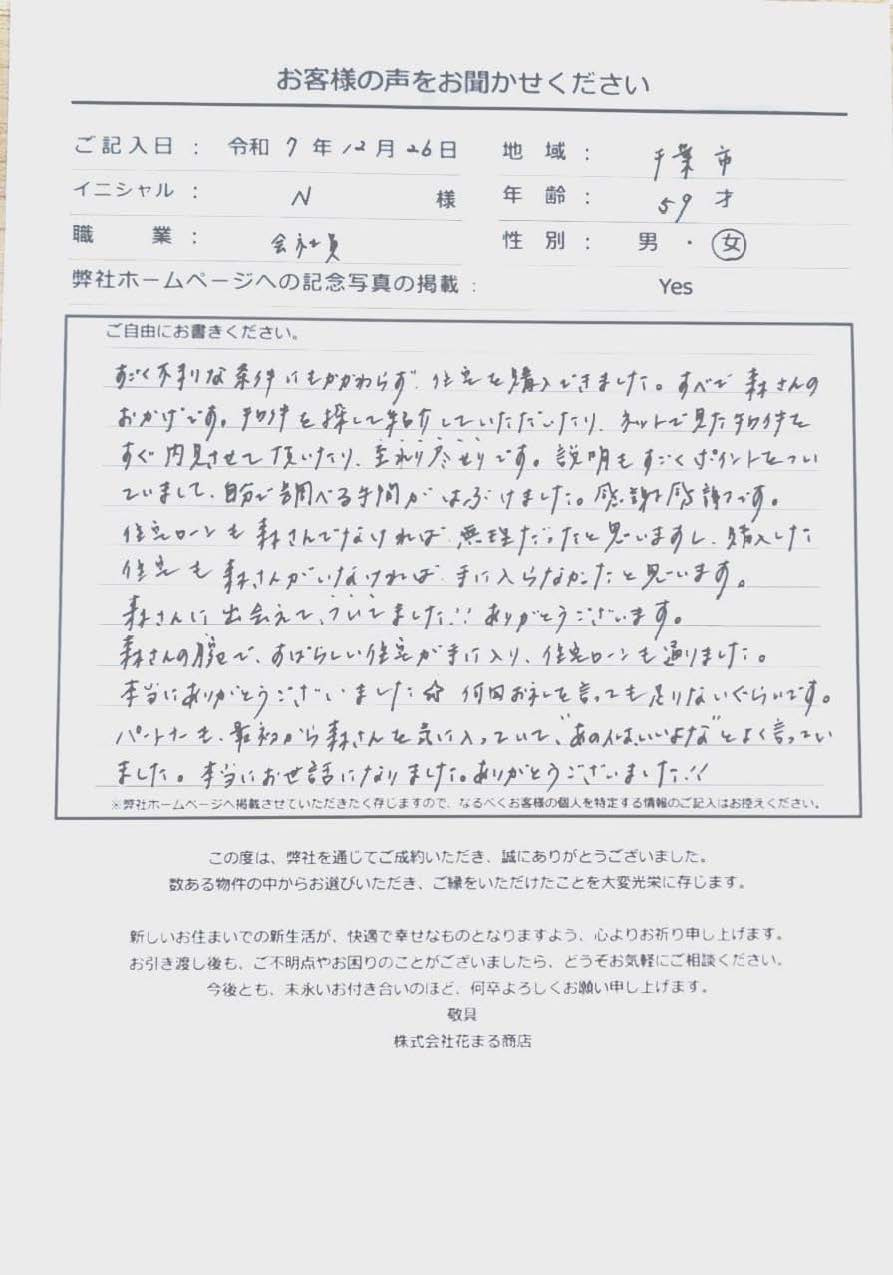 お客様の声をお聞かせください
ご記入日： 令和 7 年 12 月 26 日 地域： 千葉市
イニシャル： N 様 年齢： 59 才
職業： 会社員 性別： 男・女
弊社ホームページへの記念写真の掲載： Yes
ご自由にお書きください。
すごく不利な条件にもかかわらず、住宅を購入できました。すべて森さんの
おかげです。物件を探して紹介していただいたり、ネットで見た物件を
すぐ内見させて頂いたり、至れり尽せりです。説明もすごくポイントをつい
ていまして、自分で調べる手間がはぶけました。感謝感謝です。
住宅ローンも森さんでなければ、無理だったと思いますし、購入した
住宅も森さんがいなければ、手に入らなかったと思います。
森さんに出会えて、ついてました!! ありがとうございます。
森さんの腕で、すばらしい住宅が手に入り、住宅ローンも通りました。
本当にありがとうございました☆ 何回お礼を言っても足りないぐらいです。
パートナーも、最初から森さんを気に入っていて、“あの人はいいよな”とよく言ってい
ました。本当にお世話になりました。ありがとうございました!!
※弊社ホームページへ掲載させていただきたく存じますので、なるべくお客様の個人を特定する情報のご記入はお控えください。
この度は、弊社を通じてご成約いただき、誠にありがとうございました。
数ある物件の中からお選びいただき、ご縁をいただけたことを大変光栄に存じます。
新しいお住まいでの新生活が、快適で幸せなものとなりますよう、心よりお祈り申し上げます。
お引き渡し後も、ご不明点やお困りのことがございましたら、どうぞお気軽にご相談ください。
今後とも、末永いお付き合いのほど、何卒よろしくお願い申し上げます。
敬具
株式会社花まる商店